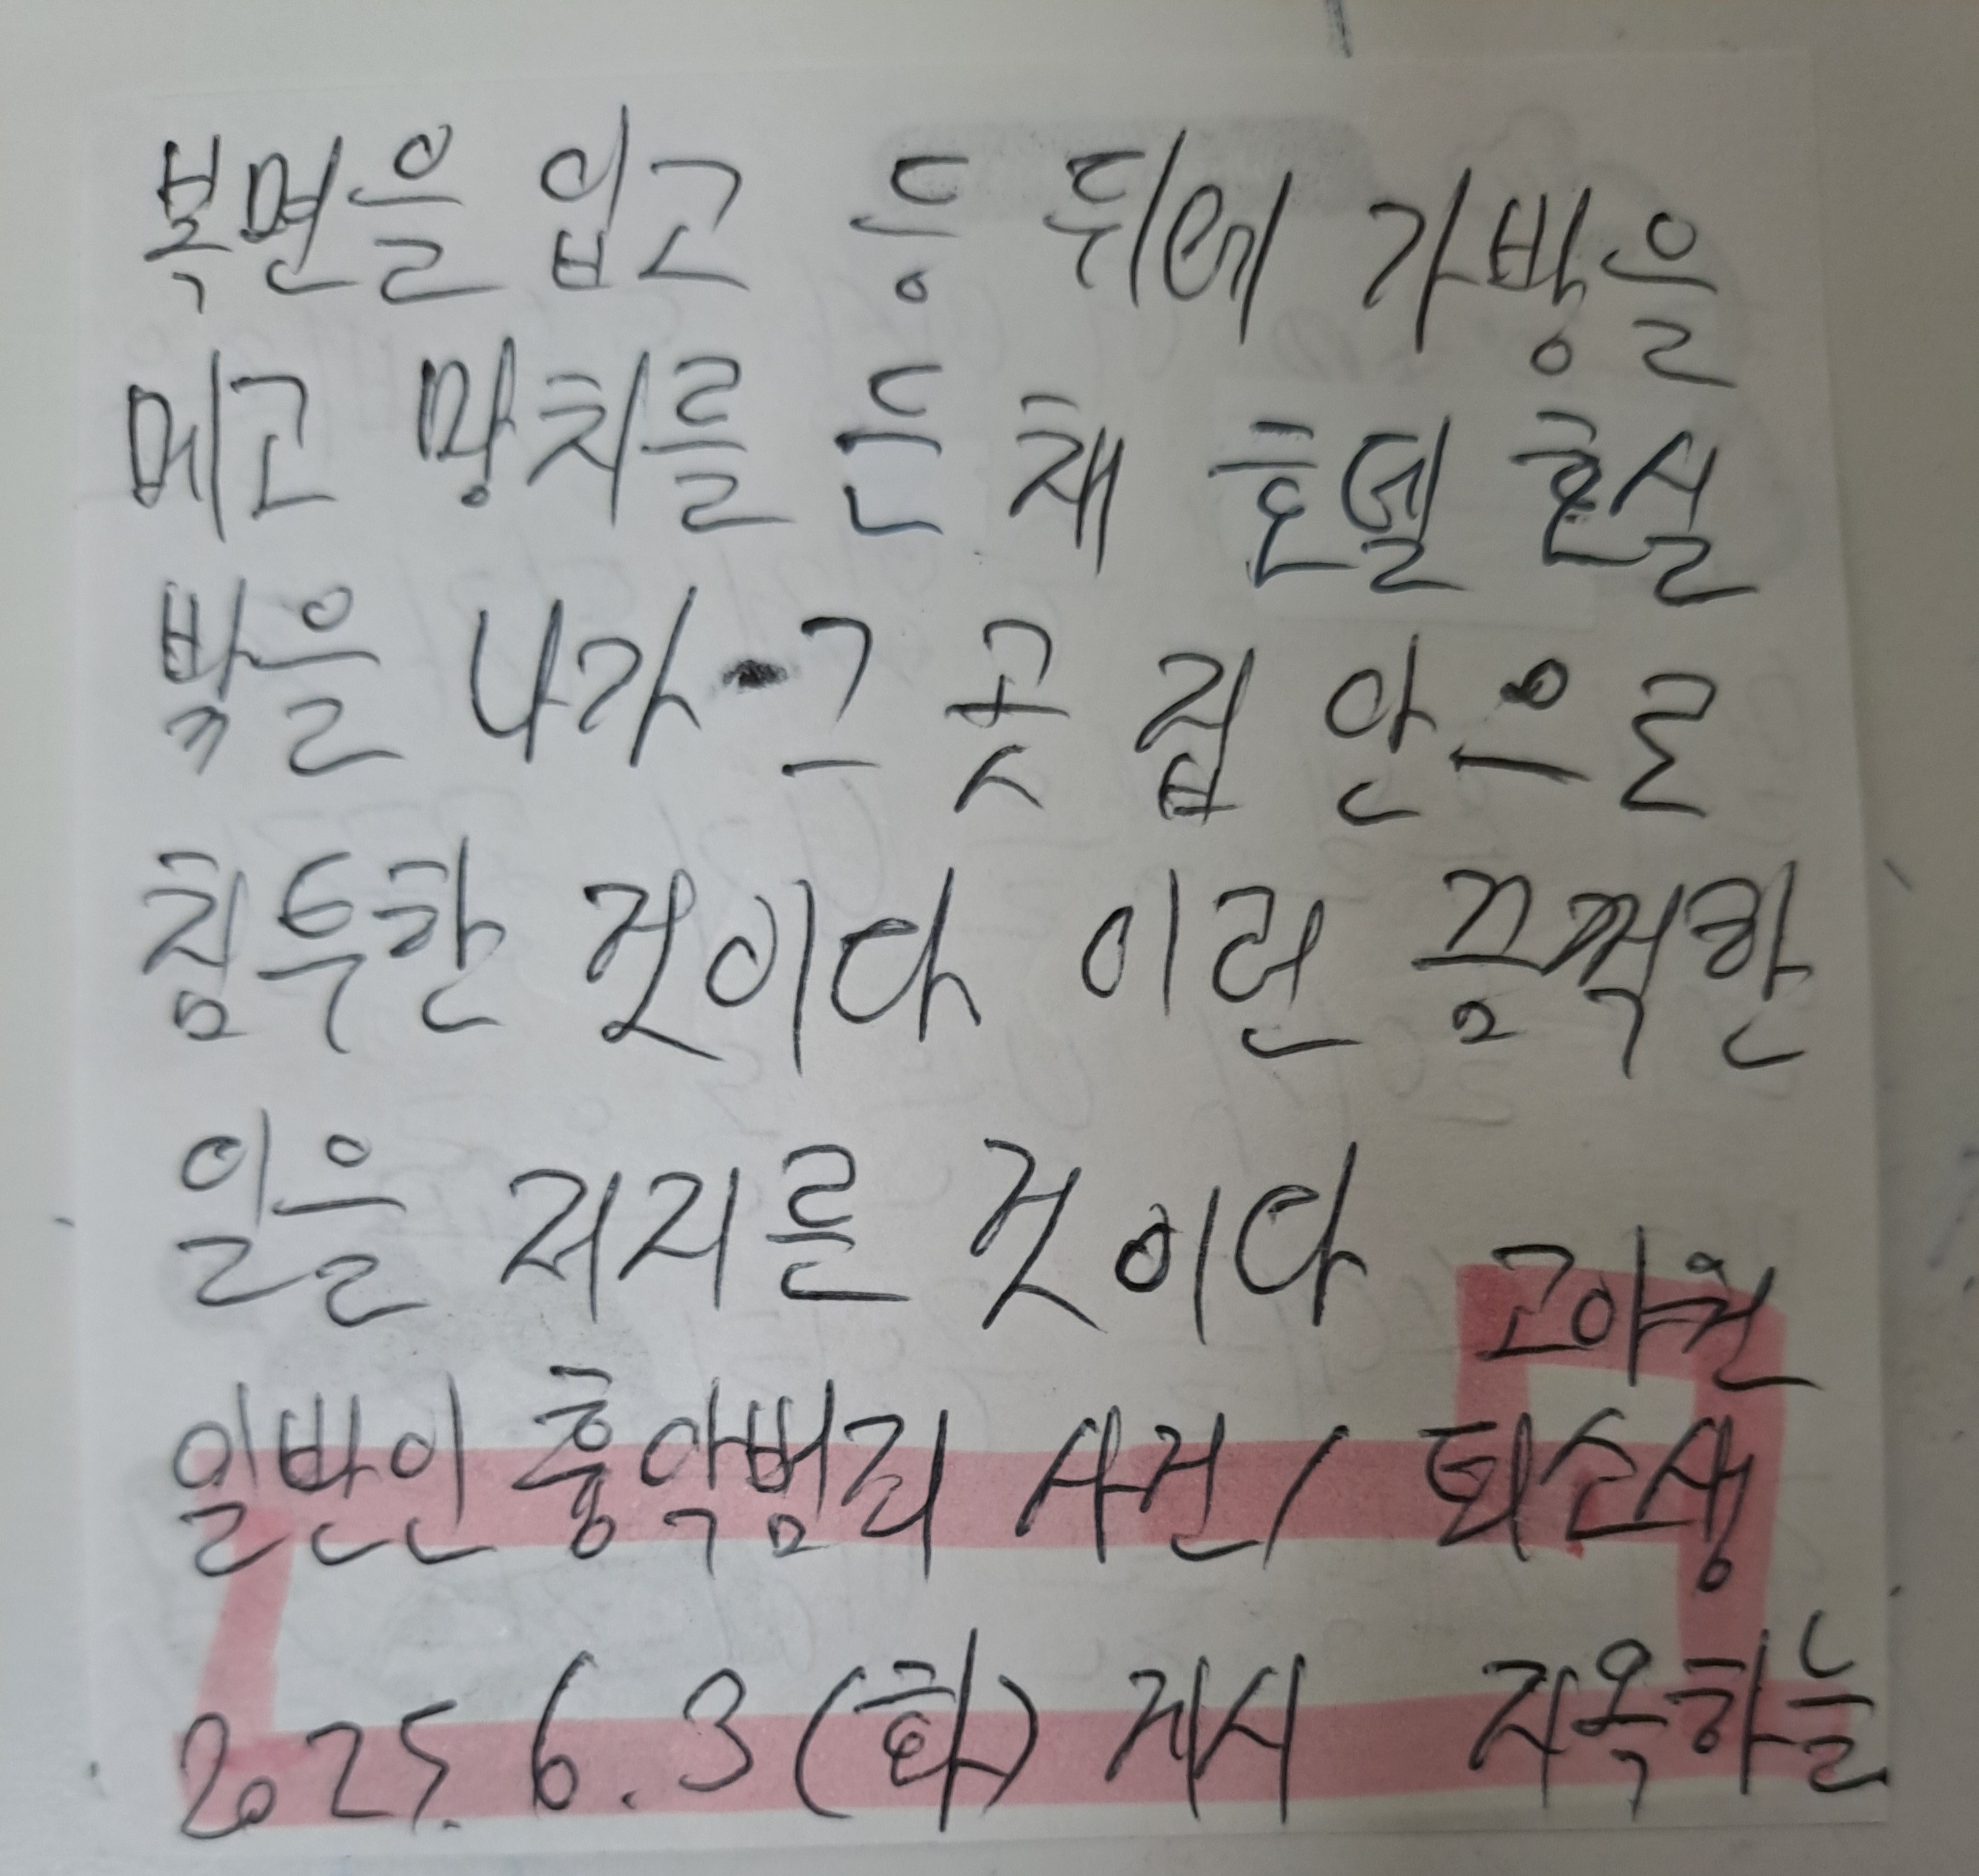 복면을 입고 등 뒤에 가방을
메고 망치를 든 채 호텔 혼실
밖을 나가 그 곳 집 안으로
침투한 것이다 이런 끔찍한
일을 저지른 것이다 고아원
일반인 흉악범죄 사건/ 퇴소생
2025. 6. 3 (화) 계시 지옥하늘